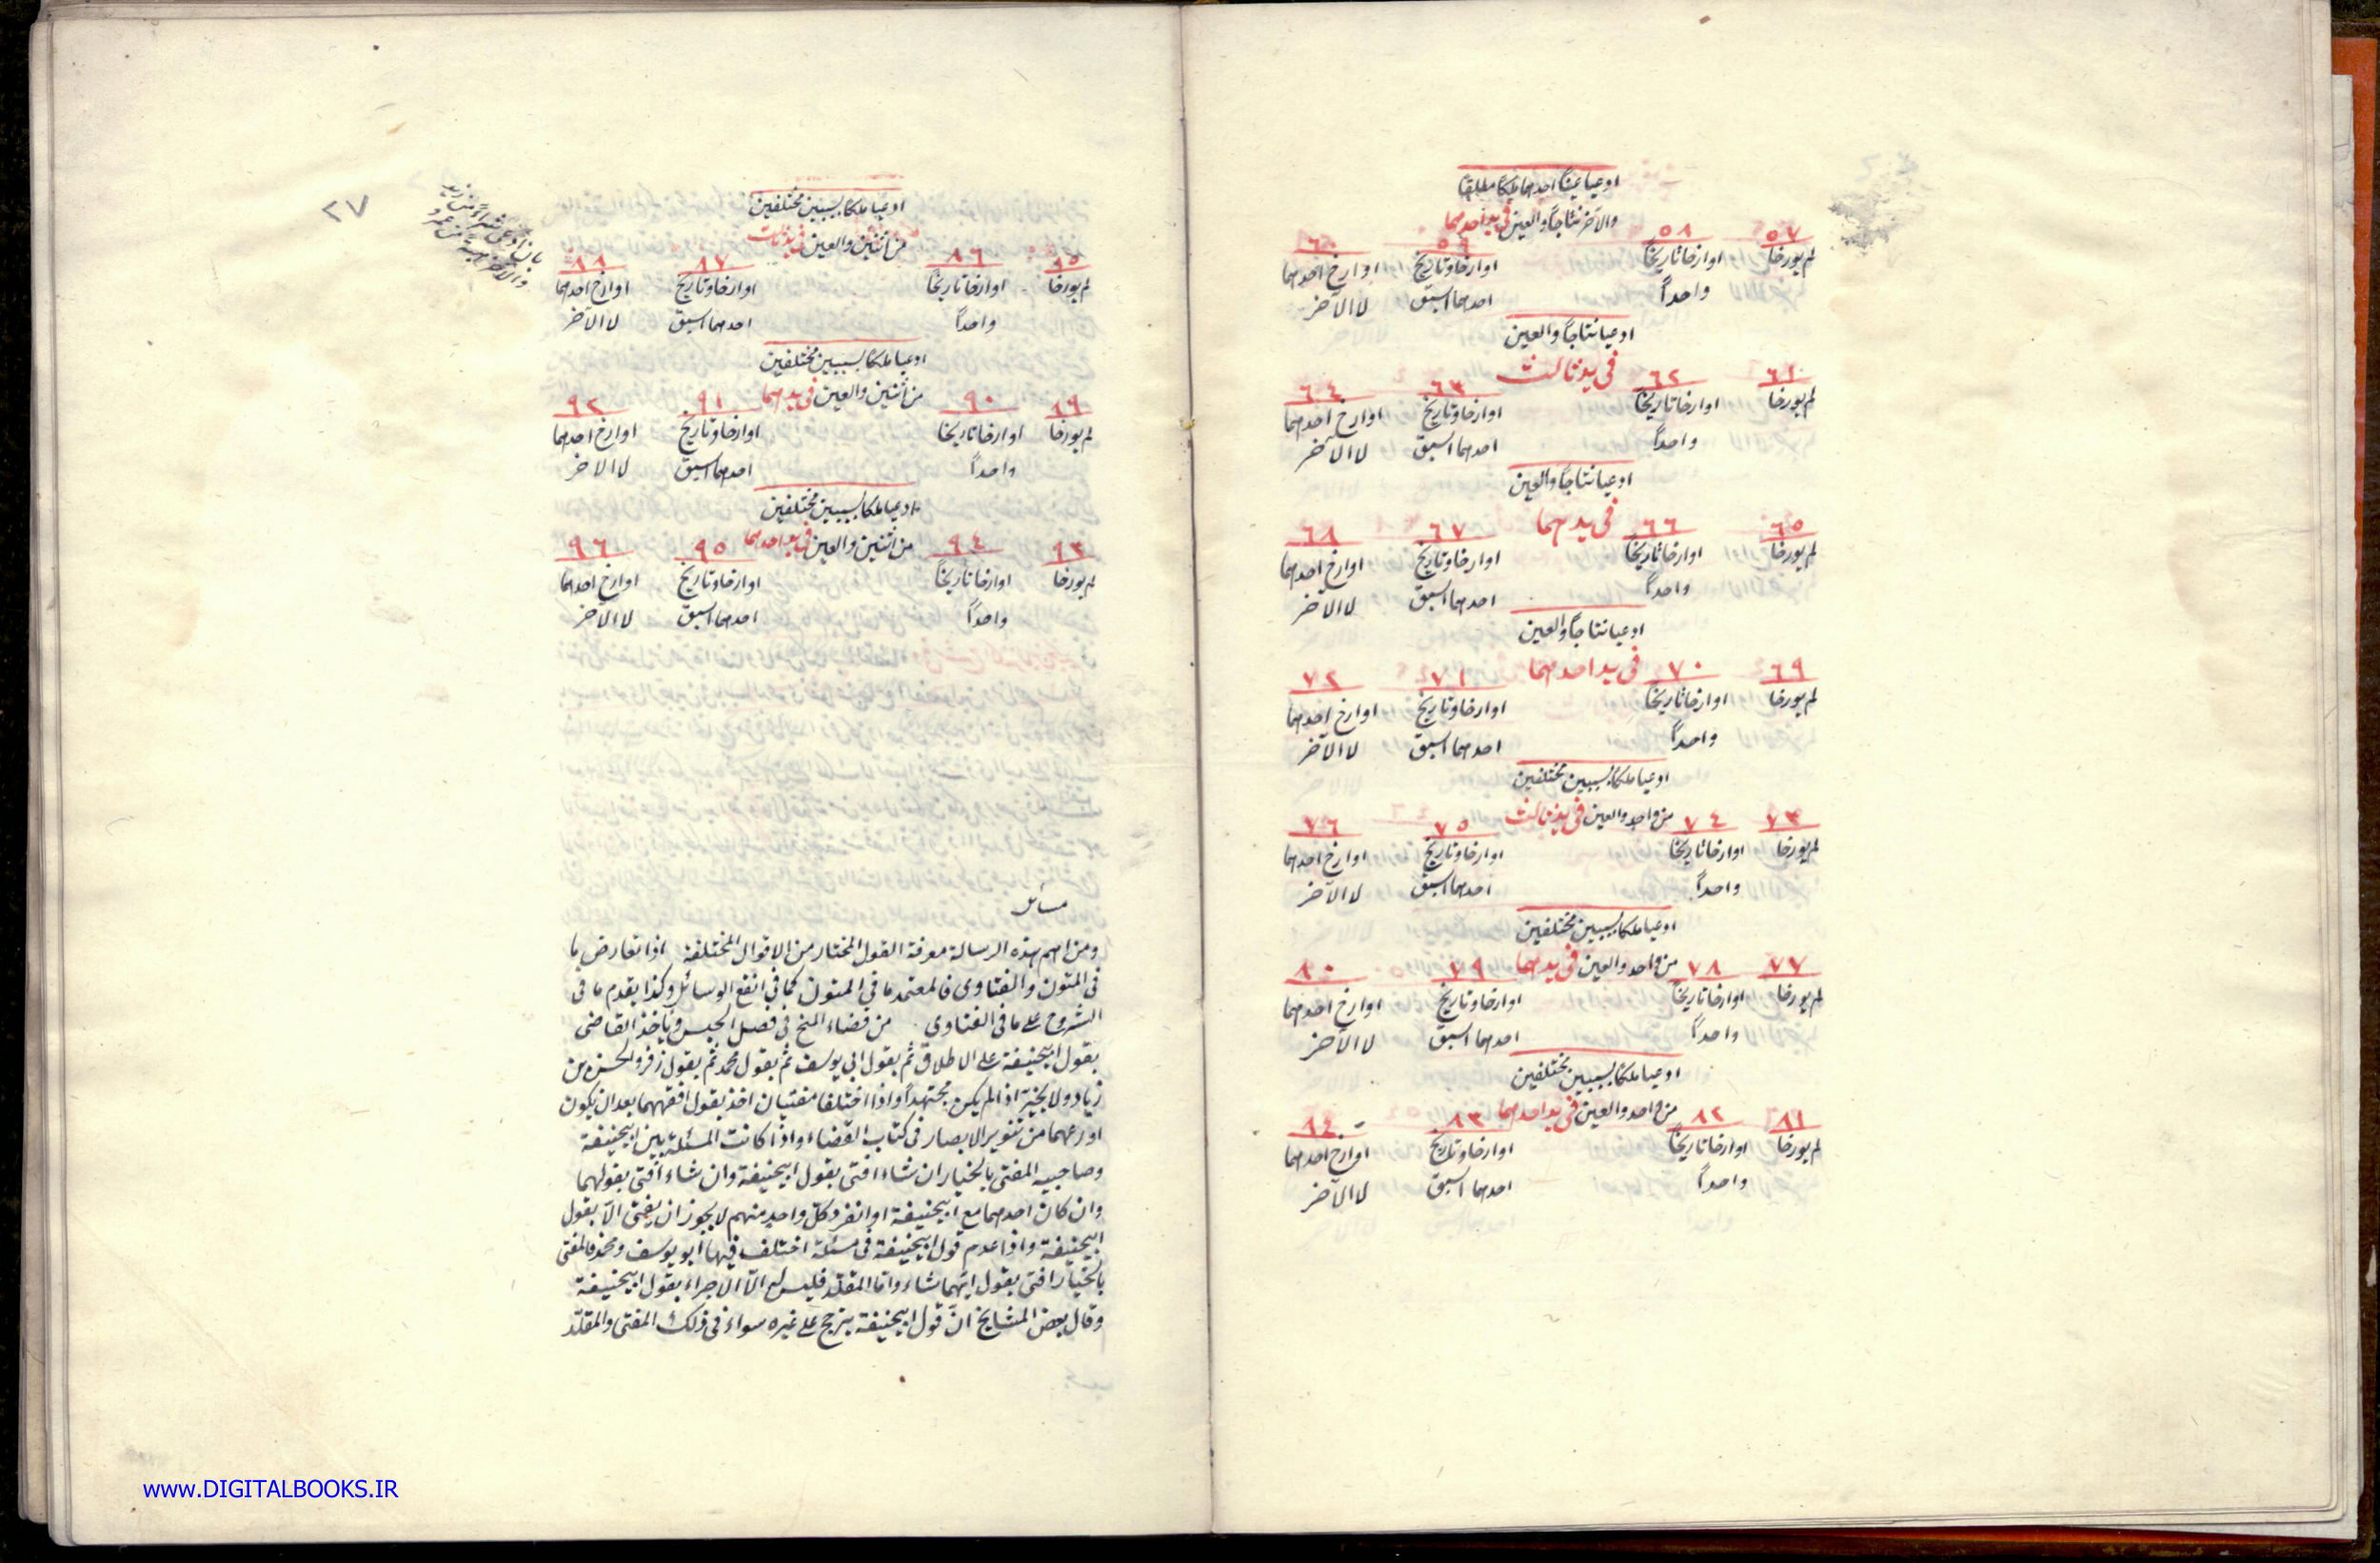 ادعيا عينا احدهما ملكا مطلقا
والآخر نتاجا والعين في يد احدهما
٥٧ ٥٨ ٥٩ ٦٠
لم يورخا اوارخا تاريخا اوارخا وتاريخ اوارخ احدهما
واحداً احدهما اسبق لا الآخر
ادعيا نتاجاً والعين
في يد ثالث
٦١ ٦٢ ٦٣ ٦٤
لم يورخا اوارخا تاريخا اوارخا وتاريخ اوارخ احدهما
واحداً احدهما اسبق لا الآخر
ادعيا نتاجاً والعين
في يدهما
٦٥ ٦٦ ٦٧ ٦٨
لم يورخا اوارخا تاريخا اوارخا وتاريخ اوارخ احدهما
واحداً احدهما اسبق لا الآخر
ادعيا نتاجاً والعين
في يد احدهما
٦٩ ٧٠ ٧١ ٧٢
لم يورخا اوارخا تاريخا اوارخا وتاريخ اوارخ احدهما
واحداً احدهما اسبق لا الآخر
ادعيا ملكا بسببين مختلفين
من واحد والعين في يد ثالث
٧٣ ٧٤ ٧٥ ٧٦
لم يورخا اوارخا تاريخا اوارخا وتاريخ اوارخ احدهما
واحداً احدهما اسبق لا الآخر
ادعيا ملكا بسببين مختلفين
من واحد والعين في يدهما
٧٧ ٧٨ ٧٩ ٨٠
لم يورخا اوارخا تاريخا اوارخا وتاريخ اوارخ احدهما
واحداً احدهما اسبق لا الآخر
ادعيا ملكا بسببين مختلفين
من واحد والعين في يد احدهما
٨١ ٨٢ ٨٣ ٨٤
لم يورخا اوارخا تاريخا اوارخا وتاريخ اوارخ احدهما
واحداً احدهما اسبق لا الآخر
٢٧
بان ادعى شراء من زيد
والآخر هبة من عمرو
ادعيا ملكا بسببين مختلفين
من اثنين والعين في يد ثالث
٨٥ ٨٦ ٨٧ ٨٨
لم يورخا اوارخا تاريخا اوارخا وتاريخ اوارخ احدهما
واحداً احدهما اسبق لا الآخر
ادعيا ملكا بسببين مختلفين
من اثنين والعين في يدهما
٨٩ ٩٠ ٩١ ٩٢
لم يورخا اوارخا تاريخا اوارخا وتاريخ اوارخ احدهما
واحداً احدهما اسبق لا الآخر
ادعيا ملكا بسببين مختلفين
من اثنين والعين في يد احدهما
٩٣ ٩٤ ٩٥ ٩٦
لم يورخا اوارخا تاريخا اوارخا وتاريخ اوارخ احدهما
واحداً احدهما اسبق لا الآخر
مسائل
ومن اهم هذه الرسالة معرفة القول المختار من الاقوال المختلفة اذا تعارض ما
في المتون والفتاوى فالمعتمد ما في المتون كما في انفع الوسائل وكذا يقدم ما في
الشروح على ما في الفتاوى من قضاء المنح في فصل الحبس وياخذ القاضى
بقول ابيحنيفة على الاطلاق ثم بقول ابي يوسف ثم بقول محمد ثم بقول زفر والحسن بن
زياد ولا يخير اذا لم يكن مجتهداً واذا اختلفا مفتيان اخذ بقول افقههما بعد ان يكون
اورعهما من تنوير الابصار في كتاب القضاء واذا كانت المسئلة بين ابيحنيفة
وصاحبيه المفتى بالخيار ان شاء افتى بقول ابيحنيفة وان شاء افتى بقولهما
وان كان احدهما مع ابيحنيفة او انفرد كل واحد منهم لا يجوز ان يفتى الّا بقول
ابيحنيفة واذا عدم قول ابيحنيفة في مسئلة اختلف فيها ابو يوسف ومحمد فالمفتى
بالخيار افتى بقول ايهما شاء واما المقلد فليس له الّا الاجراء بقول ابيحنيفة
وقال بعض المشايخ انّ قول ابيحنيفة يترجح على غيره سواء في ذلك المفتى والمقلّد
www.DIGITALBOOKS.IR